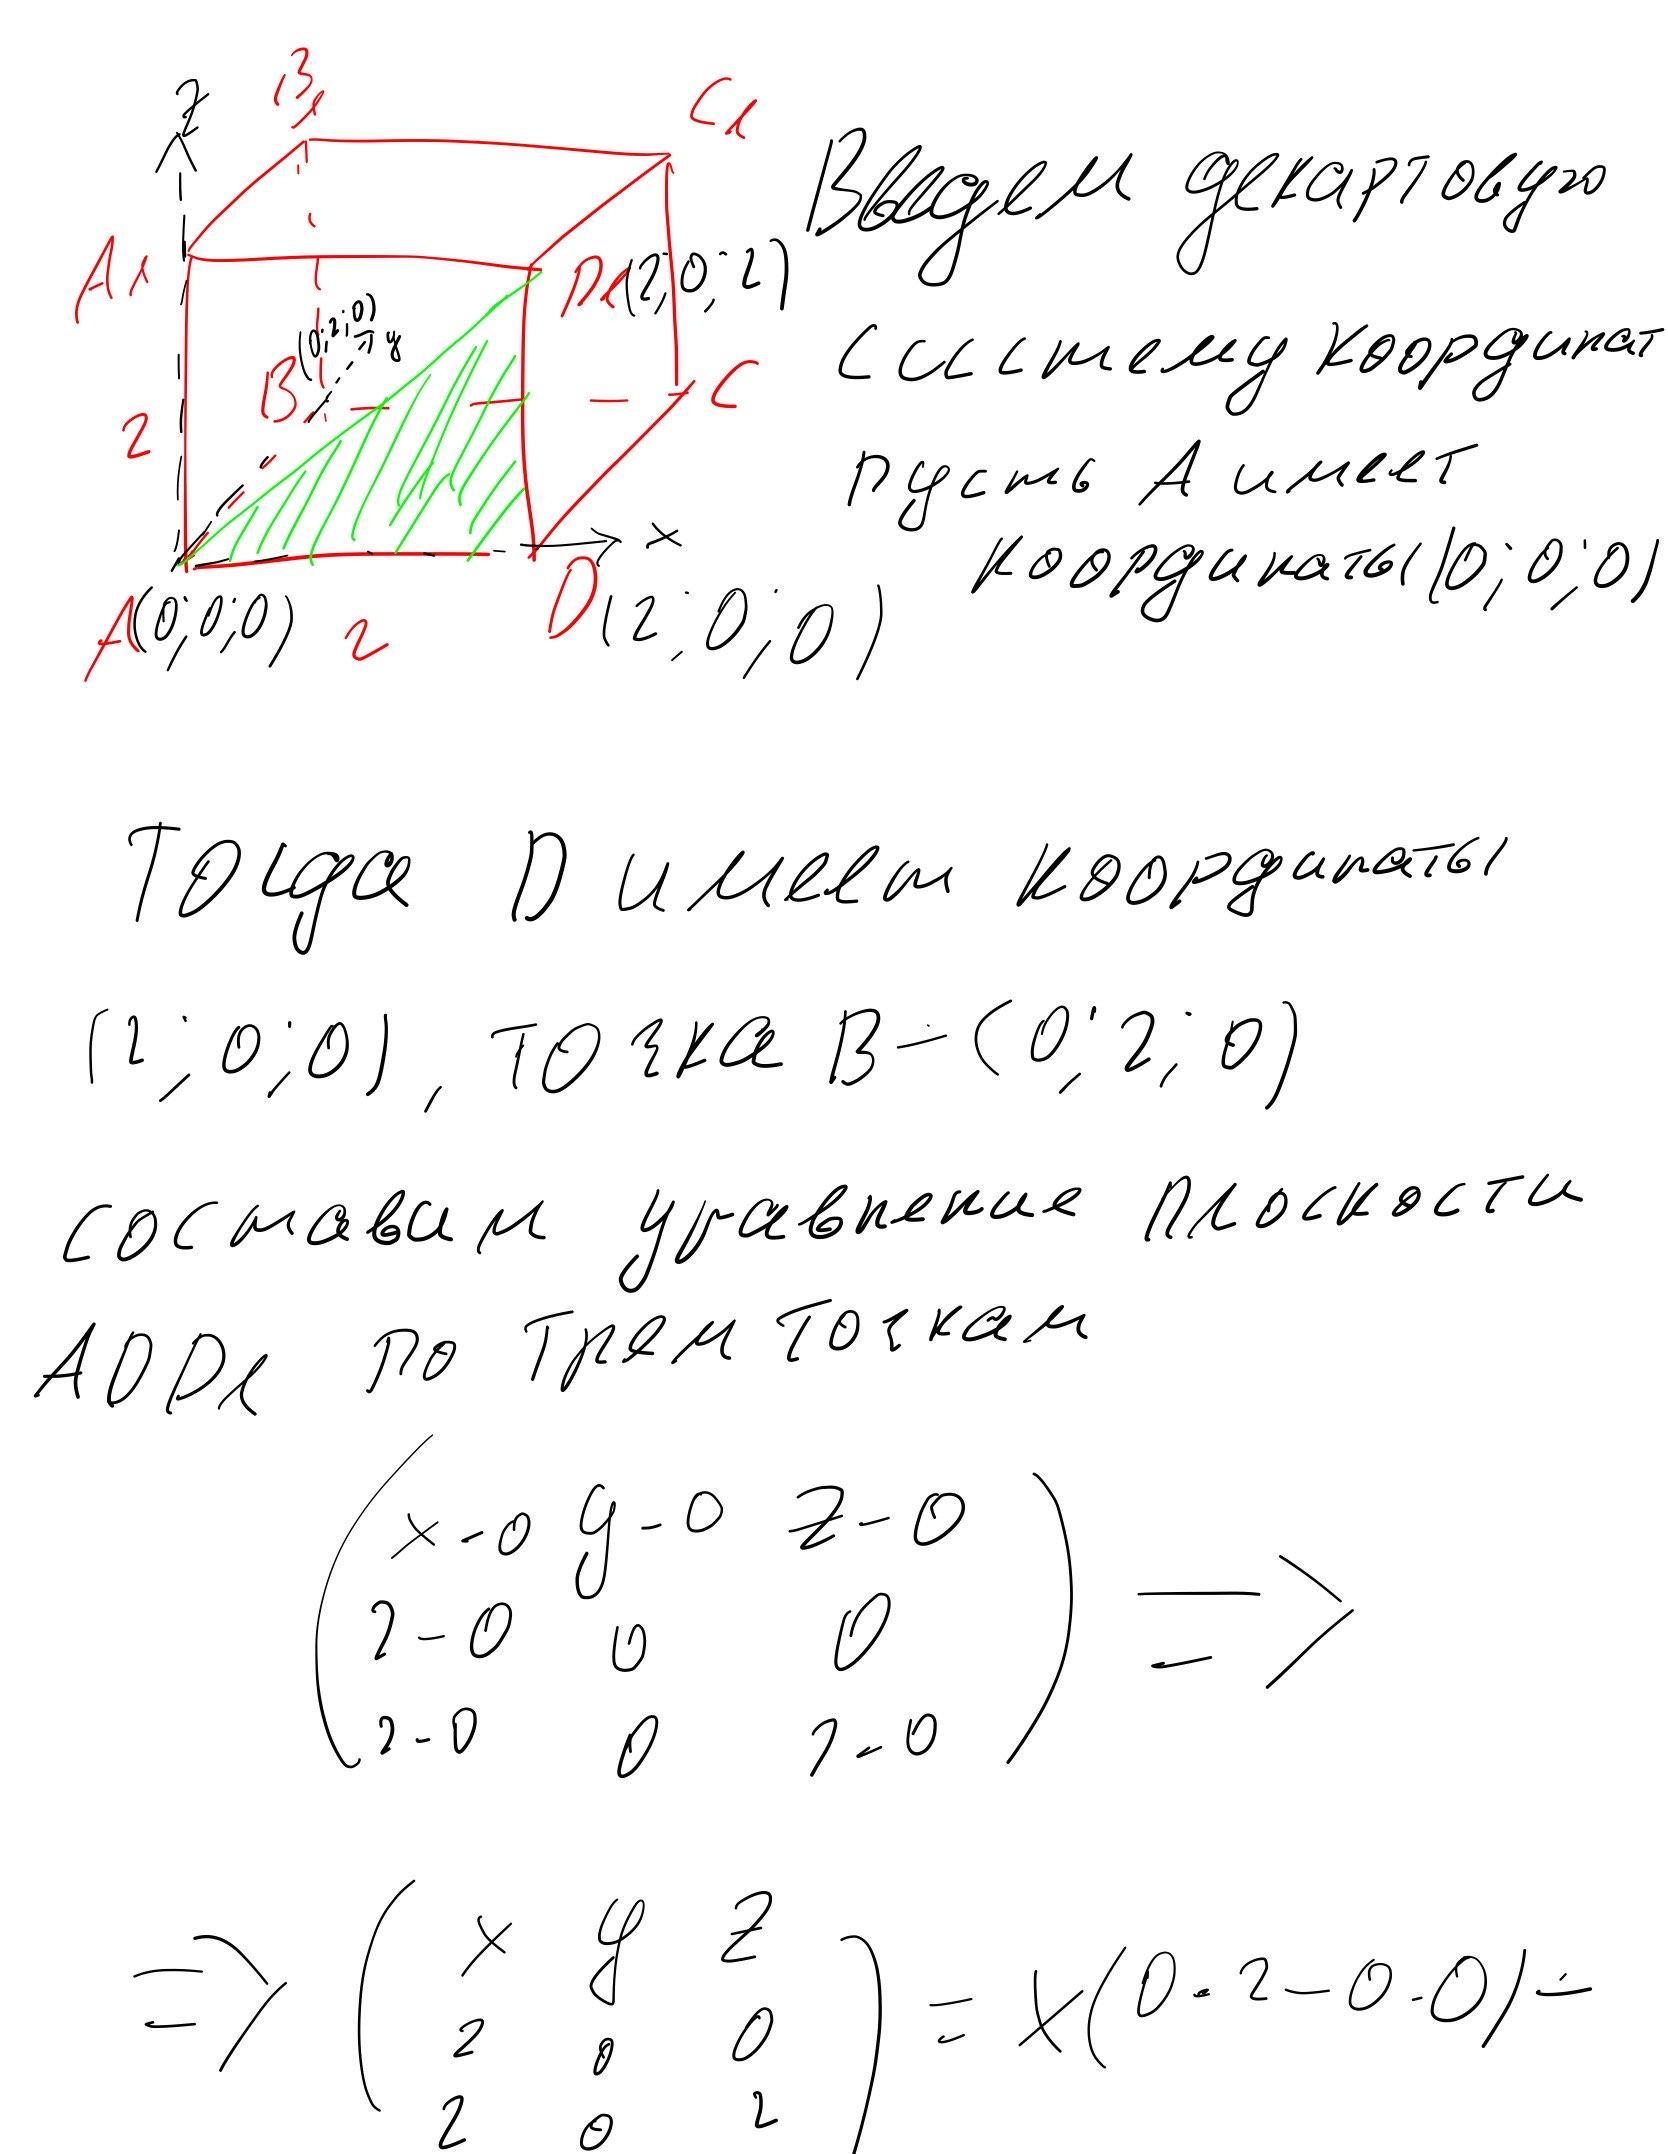 z
B1
C1
Введем декартовую
A1
D1(2;0;2)
(0;2;0)
y
систему координат
B
C
2
пусть A имеет
x
координаты (0;0;0)
A(0;0;0)
2
D(2;0;0)
Тогда D имеет координаты
(2;0;0), точка B-(0;2;0)
составим уравнение плоскости
ADD1 по трем точкам
( x-0 y-0 z-0 ) =>
2-0 0 0
2-0 0 2-0
=> ( x y z ) = x(0·2-0·0)-
2 0 0
2 0 2